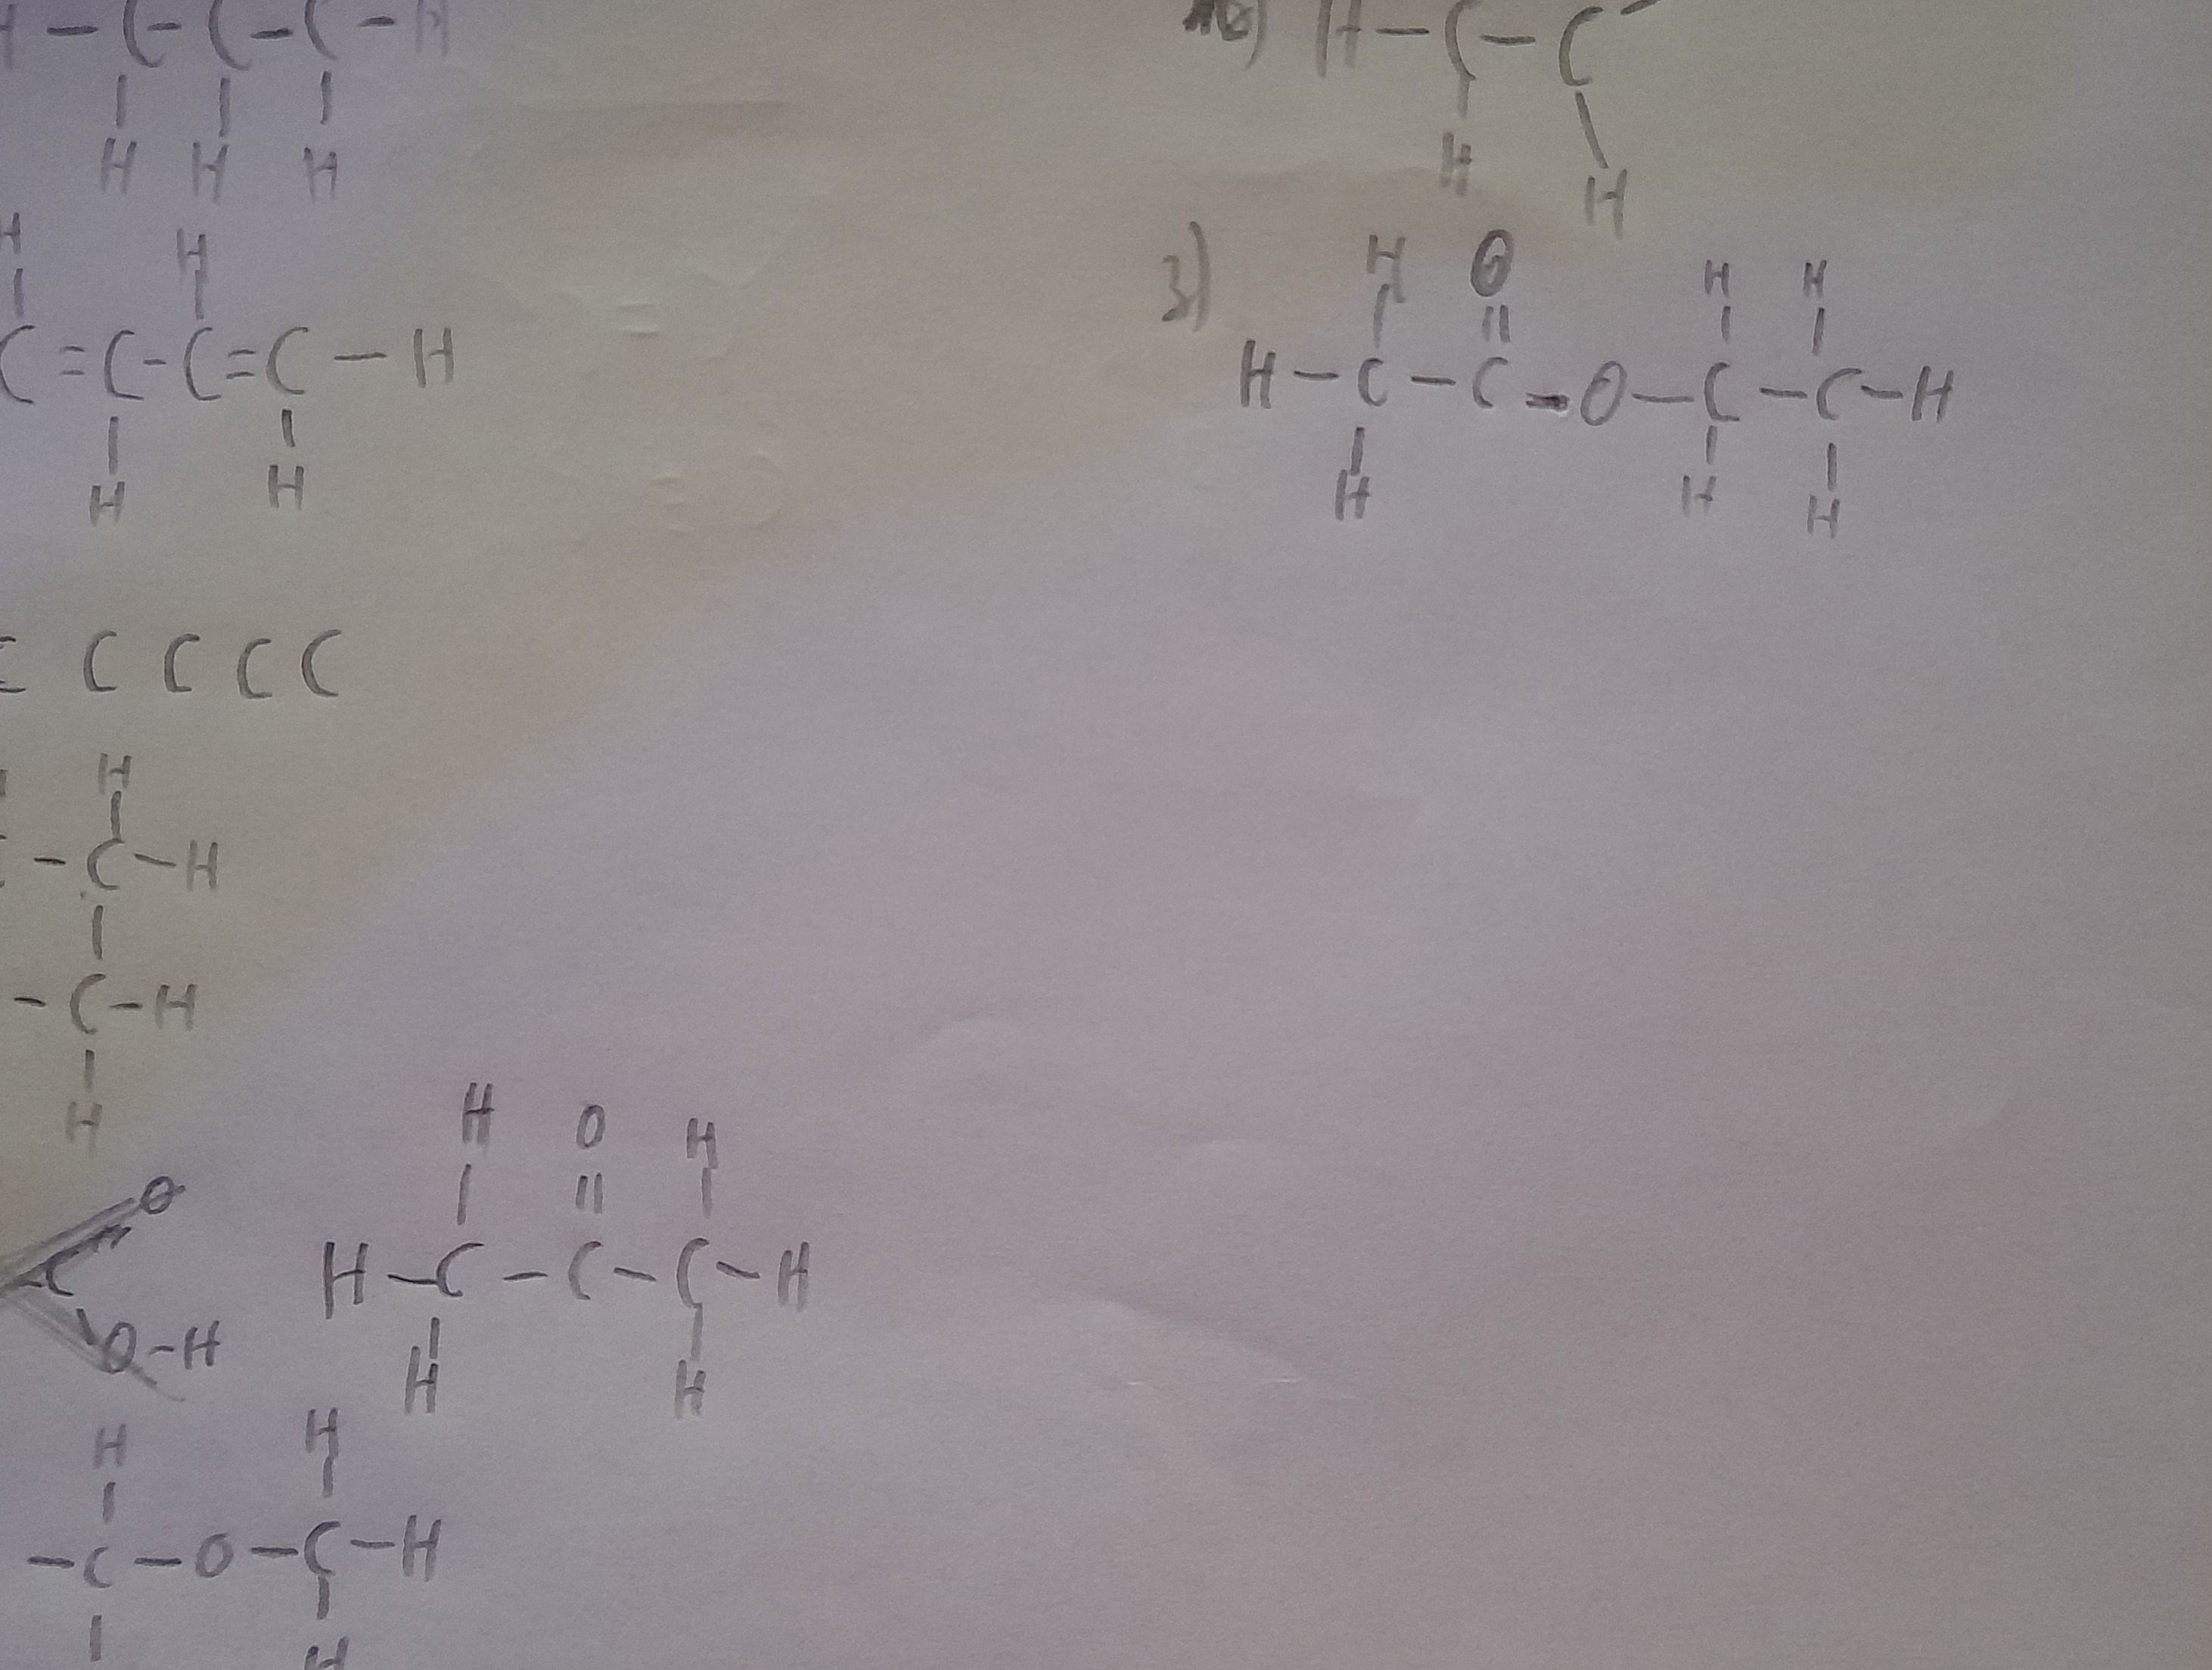 H – C – C – C – H
| | |
H H H
H H
| |
C = C – C = C – H
| |
H H
C C C C
H
|
– C – H
|
– C – H
|
H
O
C
\
O – H
H O H
| || |
H – C – C – C – H
| |
H H
H H
| |
– C – O – C – H
| |
H
H – C – C
| \
H H
3)
H O H H
| || | |
H – C – C – O – C – C – H
| | |
H H H